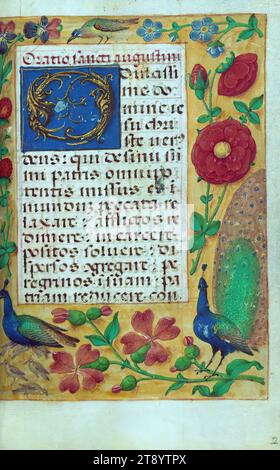 Oratio sancti augustini
Dulcissi
me do
mine ie
su chri
ste ver9
deus: qui de sinu sum
mi patris omnipo
tentis missus es i
mundū peccata re
laxare: afflictos re
dimere: in carcere
positos solvere: di
spersos cōgregare: pe
regrinos i suam pa
triam reducere con
alamy - 2T8YTPX